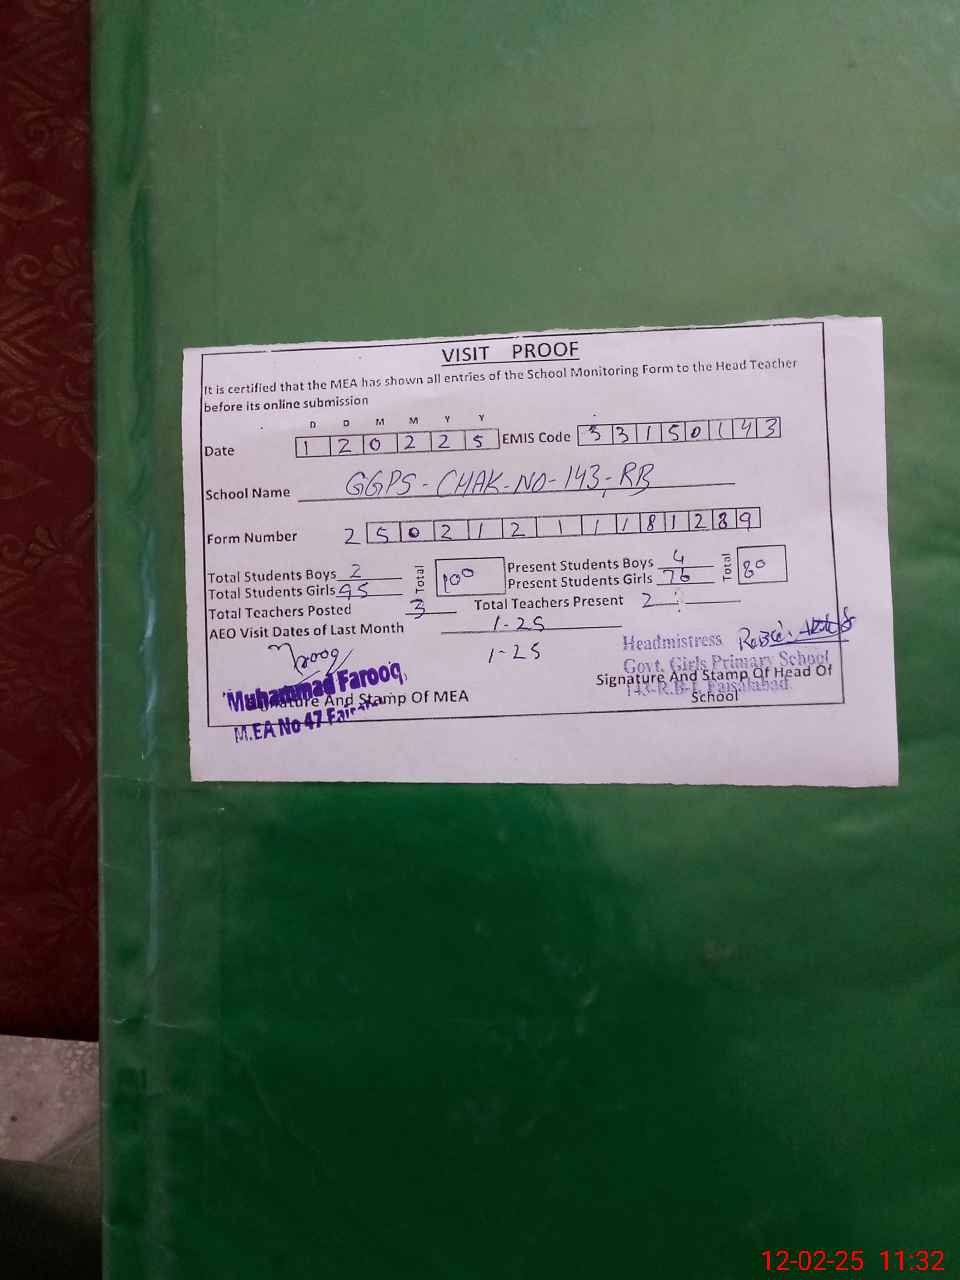 VISIT PROOF
It is certified that the MEA has shown all entries of the School Monitoring Form to the Head Teacher
before its online submission
D D M M Y Y
Date 1 2 0 2 2 5 EMIS Code 3 3 1 5 0 1 4 3
School Name GGPS-CHAK-NO-143-RB
Form Number 2 5 0 2 1 2 1 1 1 8 1 2 8 9
Total Students Boys 2 Total 100 Present Students Boys 4 Total 80
Total Students Girls 95 Present Students Girls 76
Total Teachers Posted 3 Total Teachers Present 2
AEO Visit Dates of Last Month 1-25
1-25
Farooq
Muhammad Farooq
Signature And Stamp Of MEA
M.EA No 47
Headmistress
Govt. Girls Primary School
143-R.B-I, Faisalabad.
Signature And Stamp Of Head Of
School
12-02-25 11:32